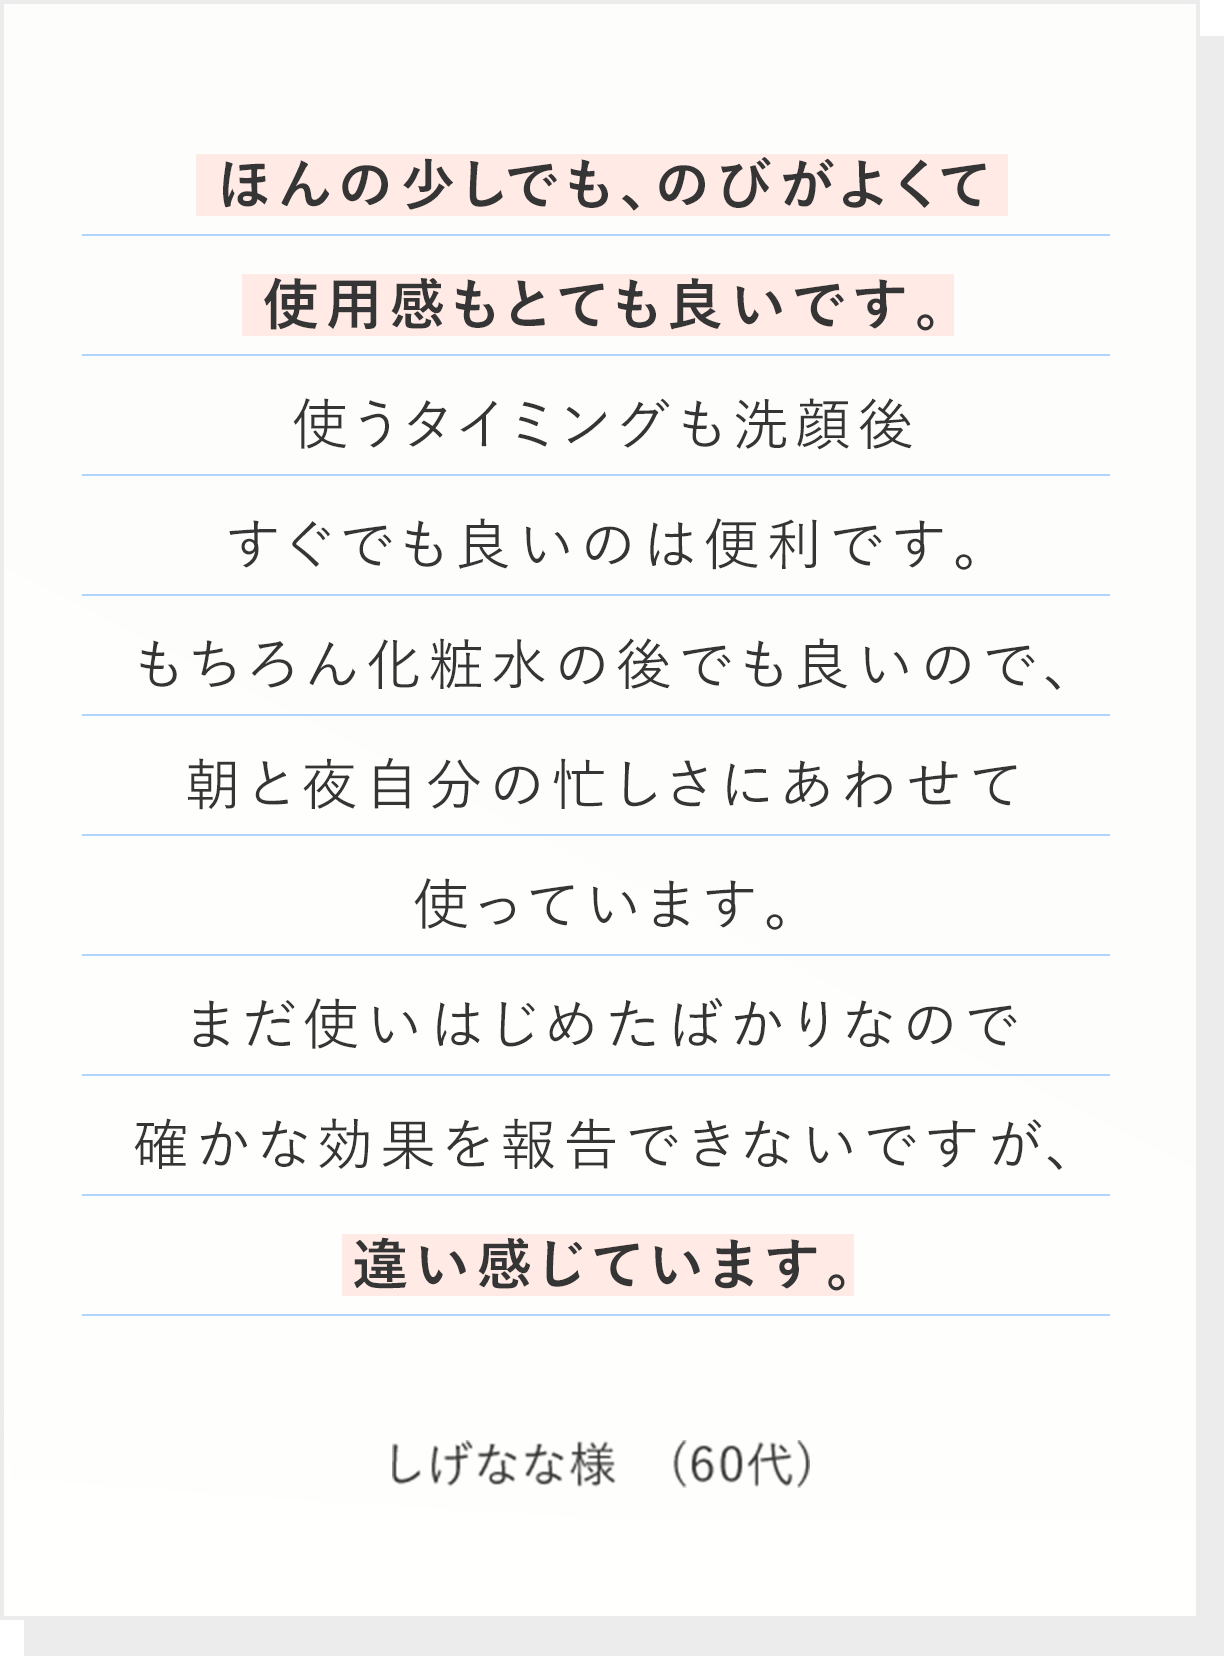 ほんの少しでも、のびがよくて
使用感もとても良いです。
使うタイミングも洗顔後
すぐでも良いのは便利です。
もちろん化粧水の後でも良いので、
朝と夜自分の忙しさにあわせて
使っています。
まだ使いはじめたばかりなので
確かな効果を報告できないですが、
違い感じています。
しげなな様　（60代）